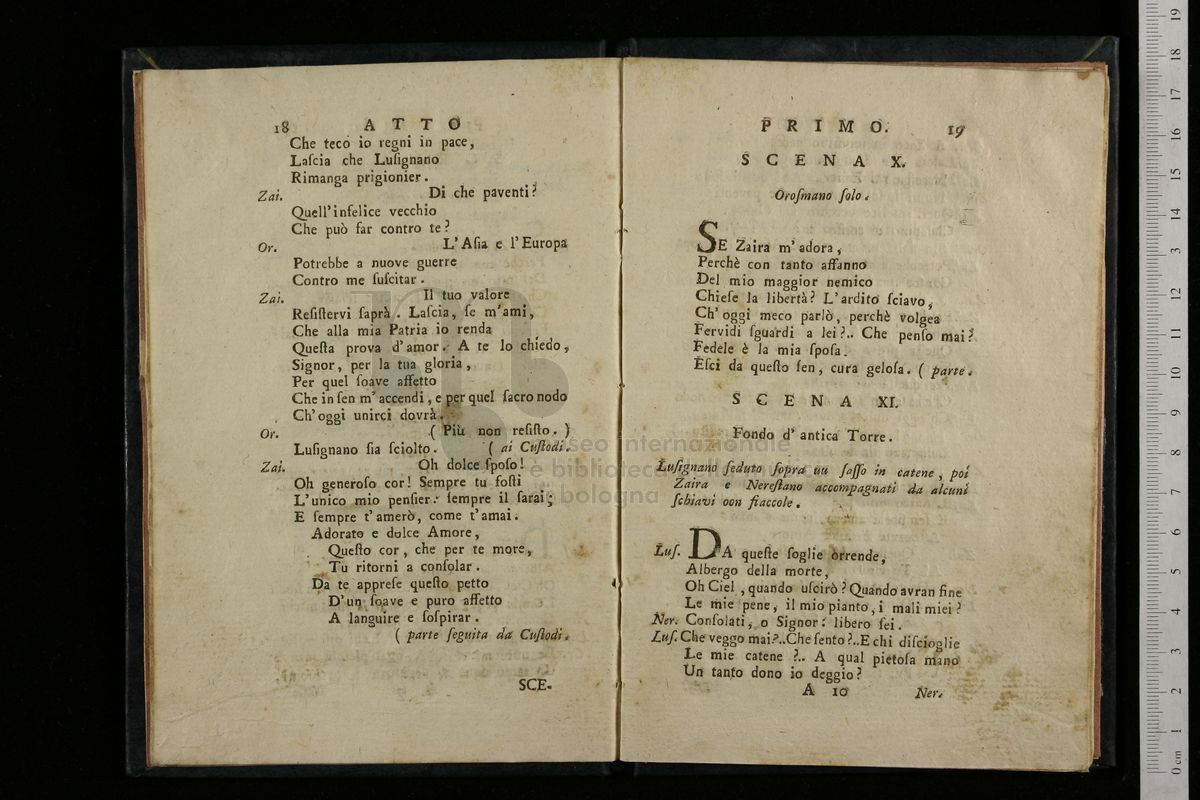 18 ATTO
Che teco io regni in pace,
Laſcia che Luſignano
Rimanga prigionier.
Zai. Di che paventi?
Quell'infelice vecchio
Che può far contro te?
Or. L'Aſia e l'Europa
Potrebbe a nuove guerre
Contro me ſuſcitar.
Zai. Il tuo valore
Reſiſtervi ſaprà. Laſcia, ſe m'ami,
Che alla mia Patria io renda
Queſta prova d'amor. A te lo chiedo,
Signor, per la tua gloria,
Per quel ſoave affetto
Che in ſen m'accendi, e per quel ſacro nodo
Ch'oggi unirci dovrà.
Or. (Più non reſiſto.)
Luſignano ſia ſciolto. (ai Cuſtodi.
Zai. Oh dolce ſpoſo!
Oh generoſo cor! Sempre tu foſti
L'unico mio penſier: ſempre il ſarai;
E ſempre t'amerò, come t'amai.
Adorato e dolce Amore,
Queſto cor, che per te more,
Tu ritorni a conſolar.
Da te appreſe queſto petto
D'un ſoave e puro affetto
A languire e ſoſpirar.
(parte ſeguita da Cuſtodi.
SCE-
PRIMO. 19
SCENA X.
Oroſmano ſolo.
SE Zaira m'adora,
Perchè con tanto affanno
Del mio maggior nemico
Chieſe la libertà? L'ardito ſciavo,
Ch'oggi meco parlò, perchè volgea
Fervidi ſguardi a lei?.. Che penſo mai?
Fedele è la mia ſpoſa.
Eſci da queſto ſen, cura geloſa. (parte.
SCENA XI.
Fondo d'antica Torre.
Luſignano ſeduto ſopra uu ſaſſo in catene, poi
Zaira e Nereſtano accompagnati da alcuni
ſchiavi oon fiaccole.
Luſ. DA queſte ſoglie orrende,
Albergo della morte,
Oh Ciel, quando uſcirò? Quando avran fine
Le mie pene, il mio pianto, i mali miei?
Ner. Conſolati, o Signor: libero ſei.
Luſ. Che veggo mai?..Che ſento?..E chi diſcioglie
Le mie catene?.. A qual pietoſa mano
Un tanto dono io deggio?
A 10 Ner.
museo internazionale
e biblioteca della musica
di bologna
0 cm 1 2 3 4 5 6 7 8 9 10 11 12 13 14 15 16 17 18 19